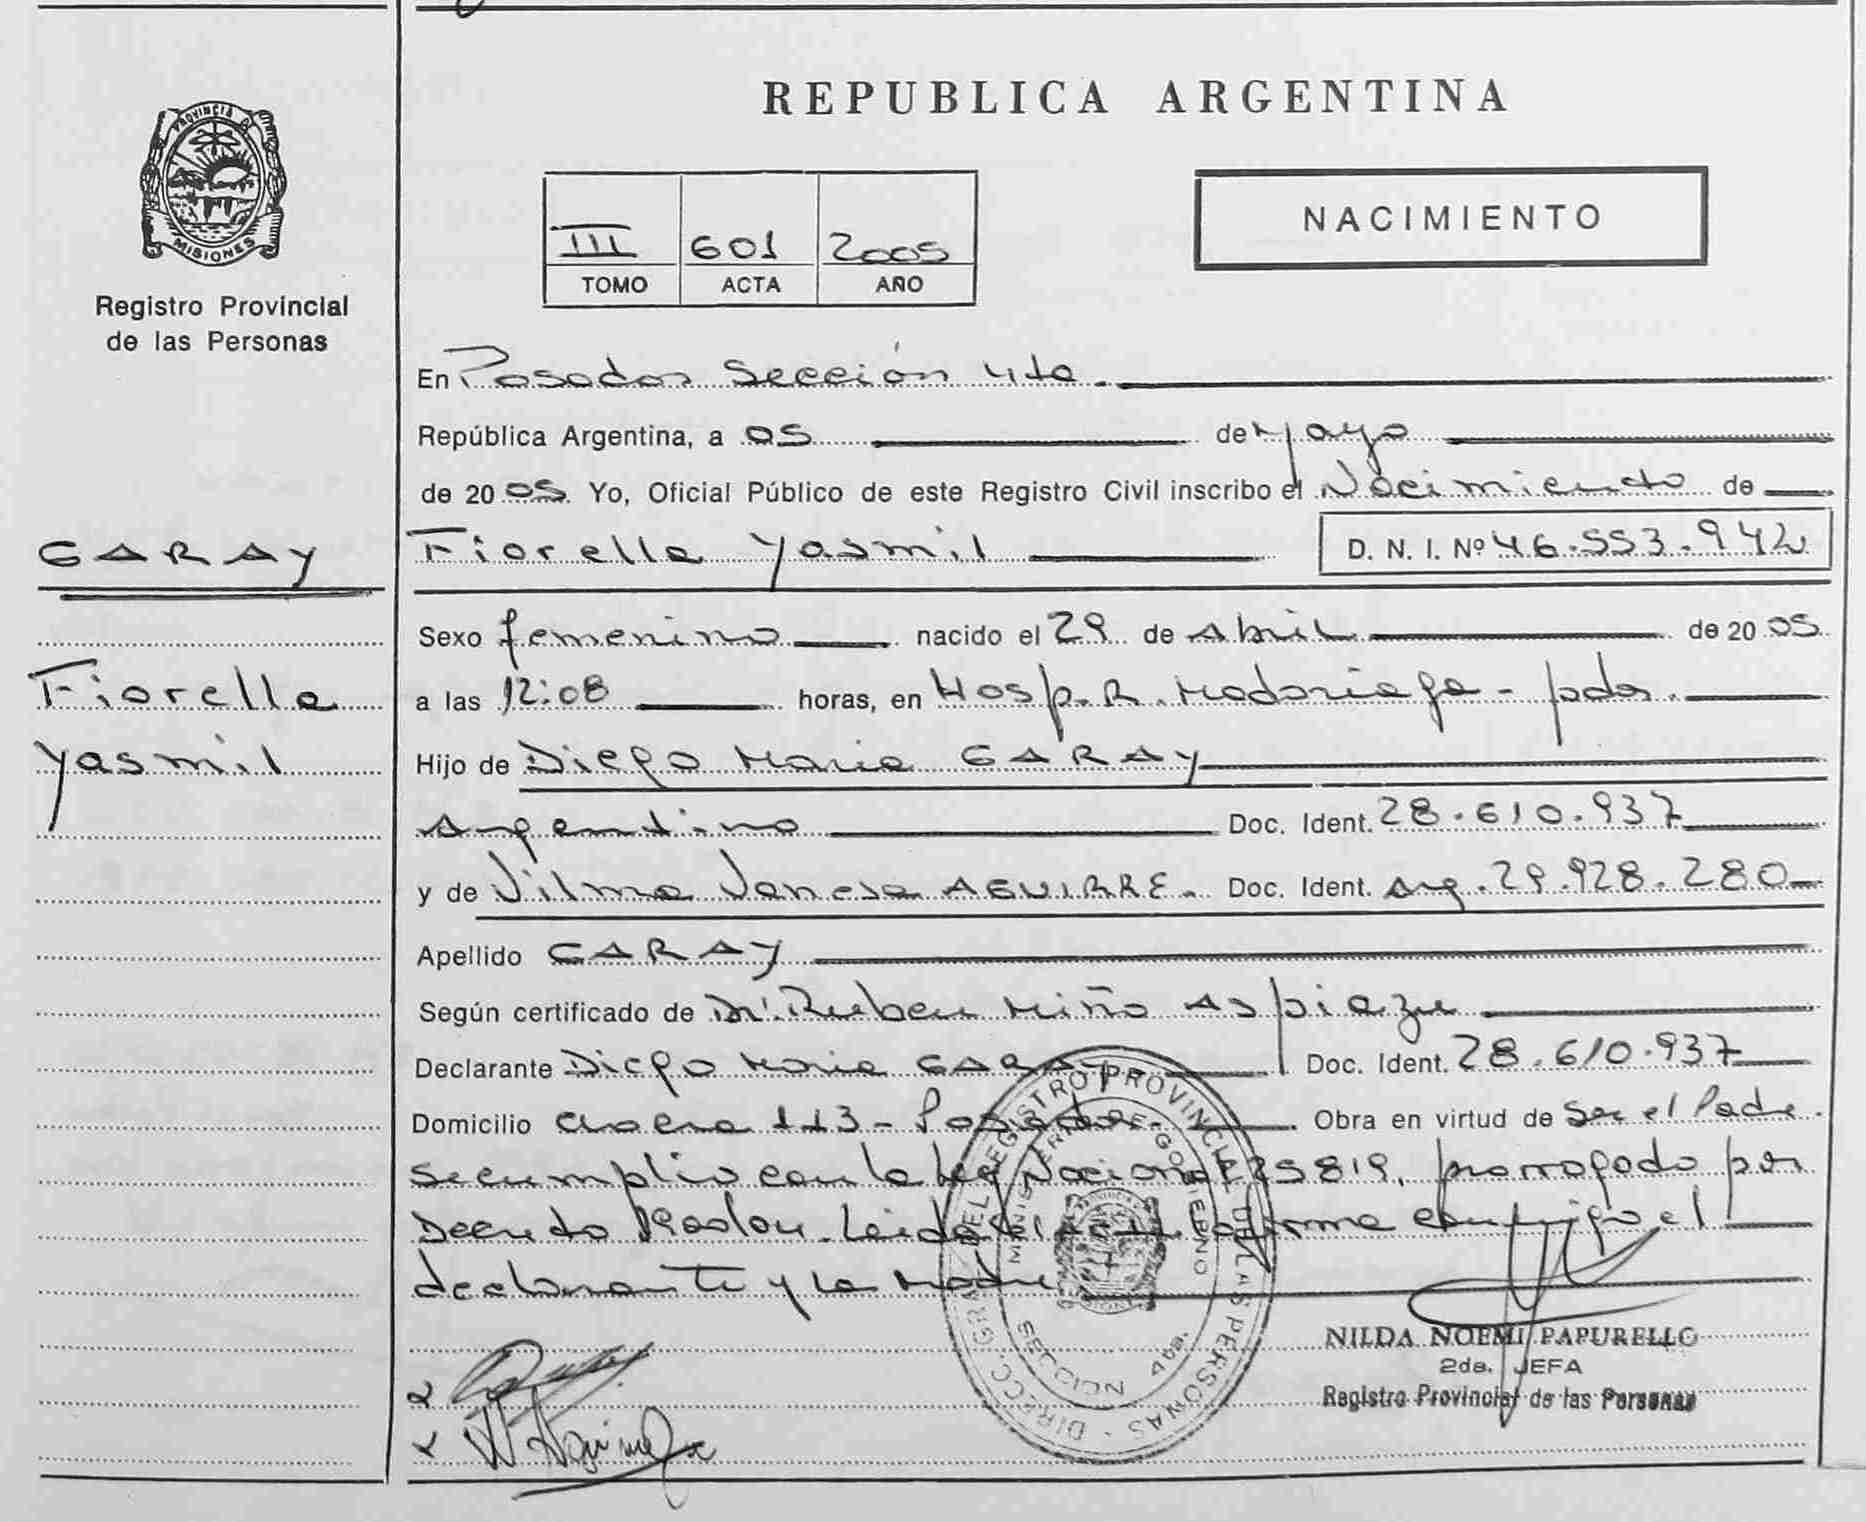 REPUBLICA ARGENTINA
PROVINCIA DE
MISIONES
Registro Provincial
de las Personas
NACIMIENTO
III 601 2005
TOMO ACTA AÑO
En Posadas Sección 4ta.
República Argentina, a 05 de Mayo
de 2005 Yo, Oficial Público de este Registro Civil inscribo el Nacimiento de
GARAY
Fiorella Yasmil D. N. I. Nº 46.553.942
Sexo femenino nacido el 29 de Abril de 2005
Fiorella
a las 12:08 horas, en Hosp. R. Madariaga - pdas.
Yasmil
Hijo de Diego Maria GARAY
Argentino Doc. Ident. 28.610.937
y de Vilma Vanesa AGUIRRE. Doc. Ident. Arg. 29.928.280
Apellido GARAY
Según certificado de Dr. Ruben Miño Aspiazu
Declarante Diego Maria GARAY Doc. Ident. 28.610.937
Domicilio 113 - Posadas. Obra en virtud de Ser el Padre.
Se cumplio con la Ley Nacional 25819, prorrogado por
Decreto Leida el Acta la firma conmigo el
declarante y la Madre
DIRECC. GRAL. DEL REGISTRO PROVINCIAL DE LAS PERSONAS
MINISTERIO DE GOBIERNO
SECCION 4ta.
NILDA NOEMI PAPURELLO
2da. JEFA
Registro Provincial de las Personas